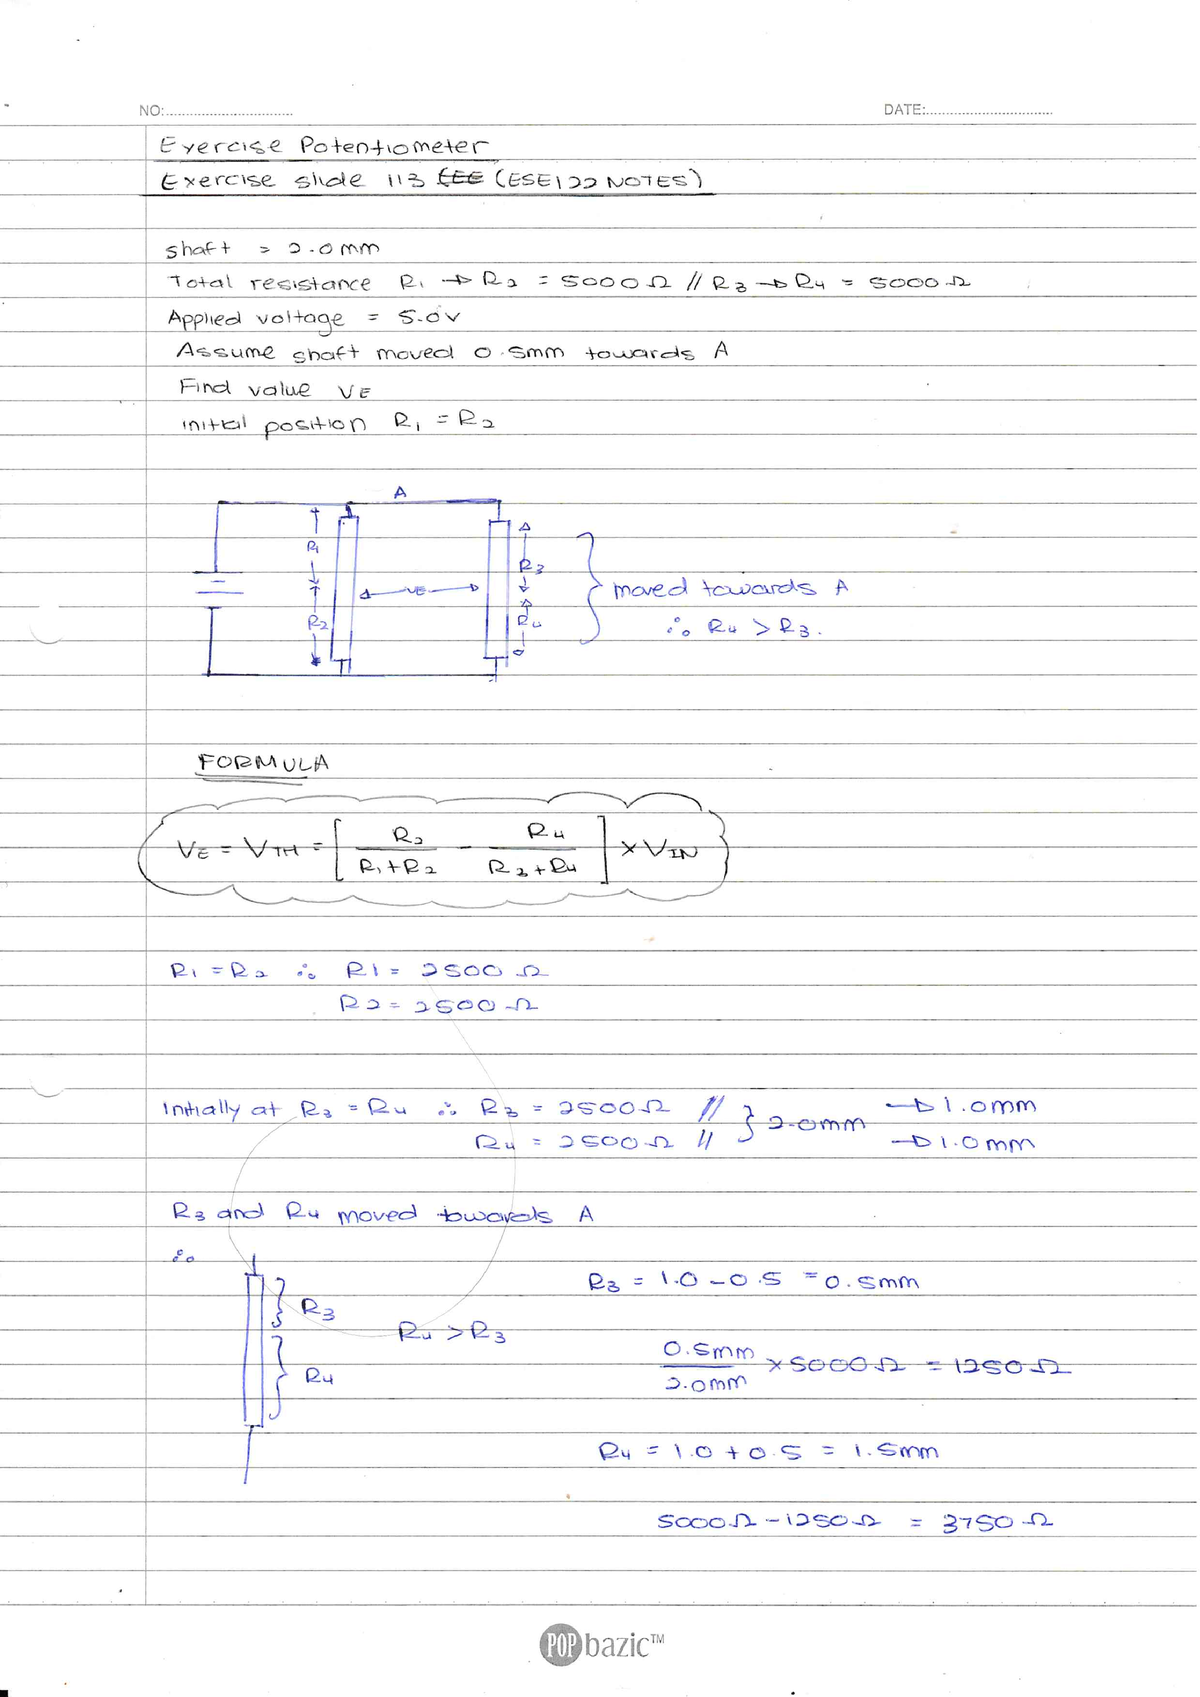 NO:................................ DATE:................................
Exercise Potentiometer
Exercise slide 113 (ESE122 NOTES)
shaft = 2.0mm
Total resistance R₁ → R₂ = 5000Ω // R₃ → R₄ = 5000Ω
Applied voltage = 5.0v
Assume shaft moved 0.5mm towards A
Find value VE
initial position R₁ = R₂
A
R₁
R₃
VE
R₂
R₄
moved towards A
∴ R₄ > R₃.
FORMULA
VE = VTH = [ R₂ / (R₁+R₂) - R₄ / (R₃+R₄) ] × VIN
R₁ = R₂ ∴ R1 = 2500Ω
R2 = 2500Ω
Initially at R₃ = R₄ ∴ R₃ = 2500Ω // } 2.0mm → 1.0mm
R₄ = 2500Ω // → 1.0mm
R₃ and R₄ moved towards A
∴
R₃ = 1.0 - 0.5 = 0.5mm
R₃
R₄ > R₃
0.5mm / 2.0mm × 5000Ω = 1250Ω
R₄
R₄ = 1.0 + 0.5 = 1.5mm
5000Ω - 1250Ω = 3750Ω
POP bazic™